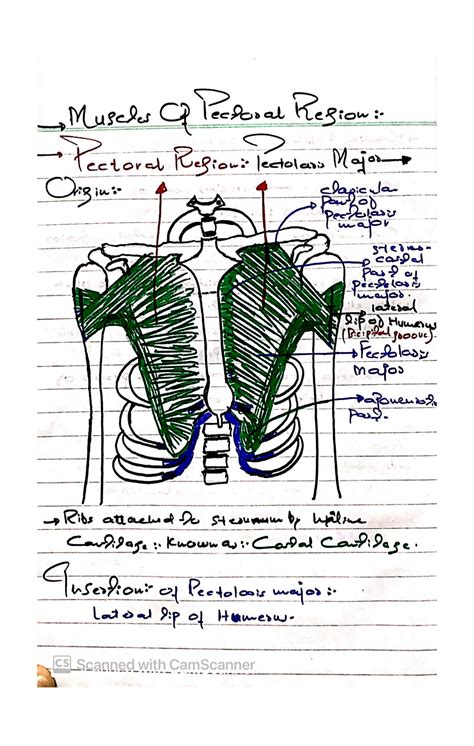 → Muscles Of Pectoral Region:-
→ Pectoral Region:- Pectolaris Major →
Origin:-
clavicular
part of
pectolaris
major
sterno-
costal
part of
pectolaris
major.
lateral
lip of Humerus
(bicipital groove)
→ Pectolaris
major
aponeurotic
part.
→ Ribs attached to sternum by hyaline
Cartilage:- Known as:- Costal Cartilage.
Insertion:- of Pectolaris major:-
Lateral lip of Humerus.
CS Scanned with CamScanner